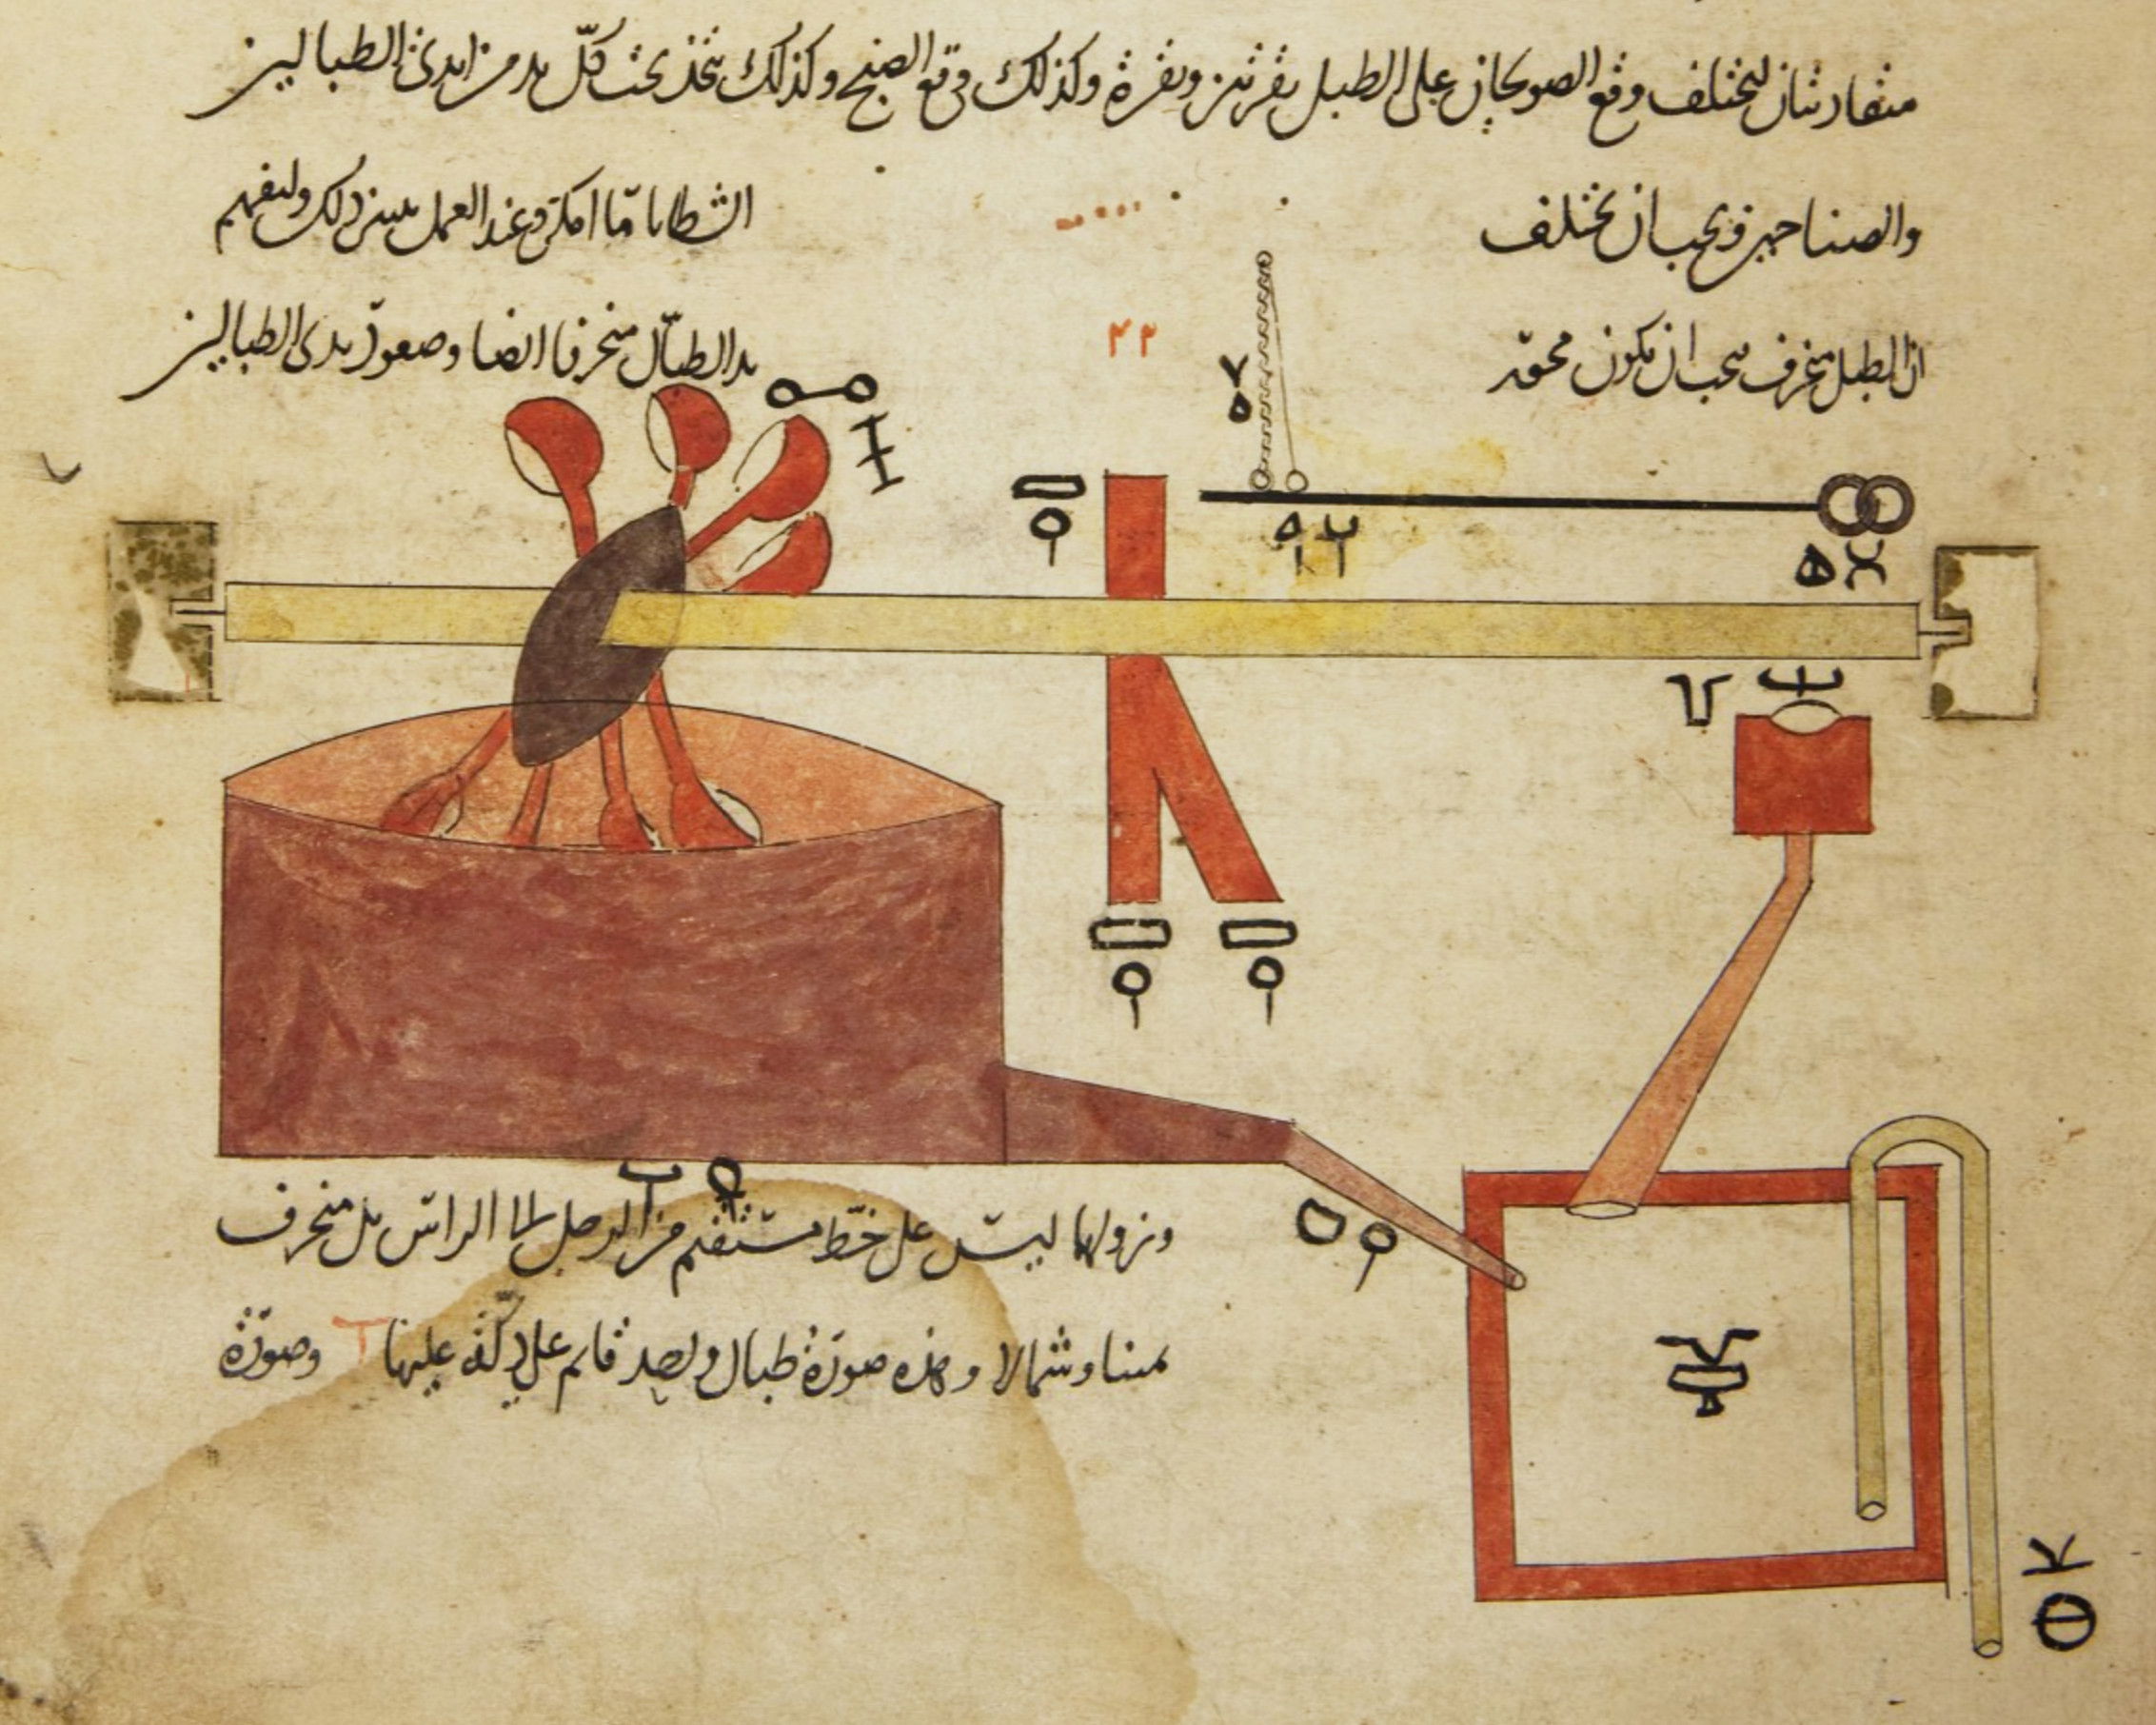 متقاربتان ليختلف وقع الصولجان على الطبل بنقرتين ونقرة وكذلك وقع الصنج وكذلك يتخذ تحت كل يد من ايدي الطبالين
والصناجين ويجب ان تختلف الشظايا ما امكن وعند العمل يتبين ذلك وليفهم
ان الطبل منحرف يجب ان يكون يد الطبال منحرفا ايضا وصعود يدي الطبالين
٢٢
ونزولها ليس على خط مستقيم من الرجل الى الراس بل منحرف
يمينا وشمالا وهذه صورة طبال واحد قائم على دكة عليها وصورة